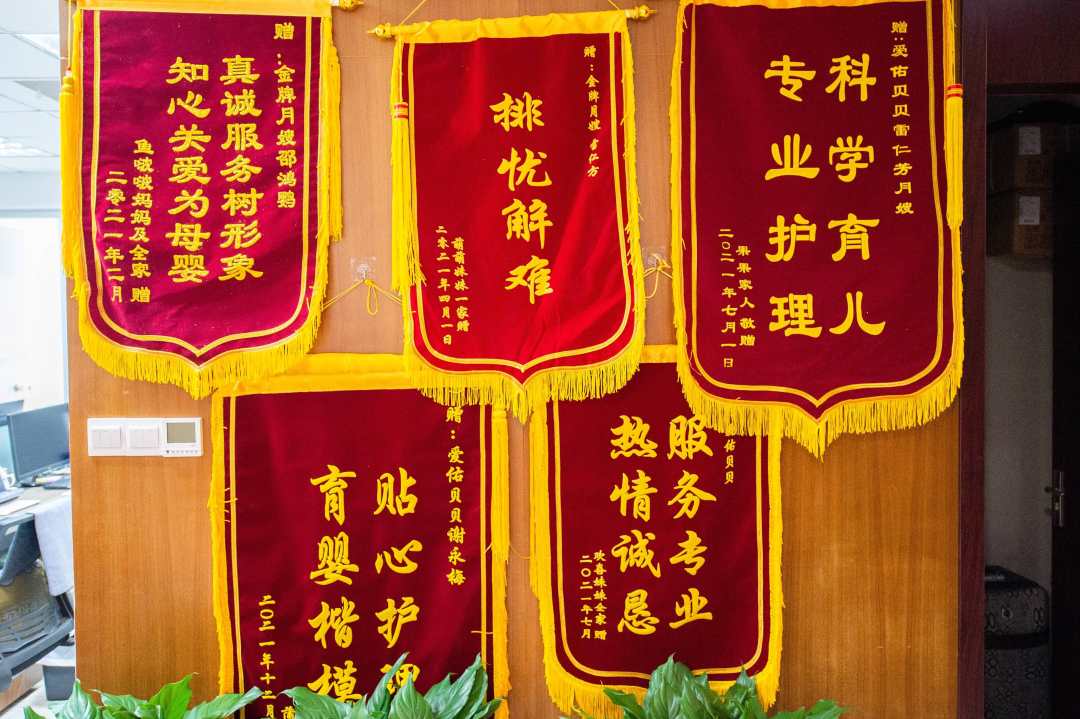 赠：金牌月嫂邵鸿鹦
真诚服务树形象
知心关爱为母婴
鱼啵啵妈妈及全家 赠
二零二一年二月
赠：金牌月嫂 李仁方
排忧解难
萌萌妹一家赠
二零二一年四月一日
赠：爱佑贝贝雷仁芳月嫂
科学育儿
专业护理
果果家人 敬赠
二〇二一年七月一日
赠：爱佑贝贝谢永梅
贴心护理
育婴楷模
二〇二一年十二月
佑贝贝
服务专业
热情诚恳
欢喜妹妹全家赠
二〇二一年七月